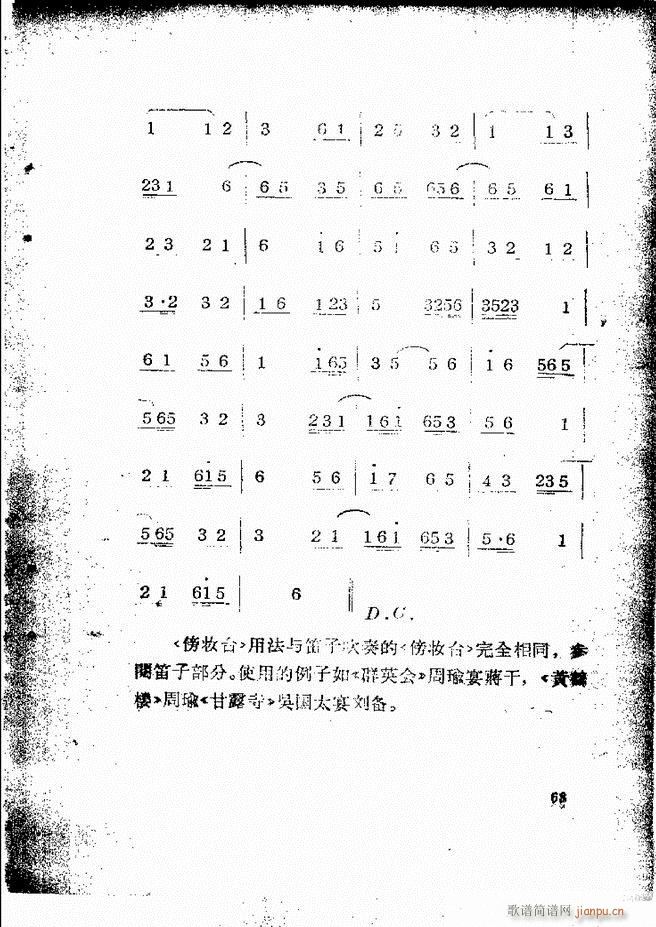 1 1 2 | 3 6 1 | 2 6 3 2 | 1 1 3 |
231 6 | 65 35 | 65 656 | 65 61 |
23 21 | 6 i6 | 5i 65 | 32 12 |
3·2 32 | 16 123 | 5 3256 | 3523 1 |
61 56 | 1 i65 | 35 56 | i6 565 |
565 32 | 3 231 | 16i 653 | 56 1 |
21 6i5 | 6 56 | i7 65 | 43 235 |
565 32 | 3 21 | 16i 653 | 5·6 1 |
21 6i5 | 6 ‖
D.C.
《傍妆台》用法与笛子吹奏的《傍妆台》完全相同，参
閱笛子部分。使用的例子如《群英会》周瑜宴蔣干，《黃鶴
楼》周瑜《甘露寺》吳国太宴刘备。
68
歌谱简谱网 jianpu.cn